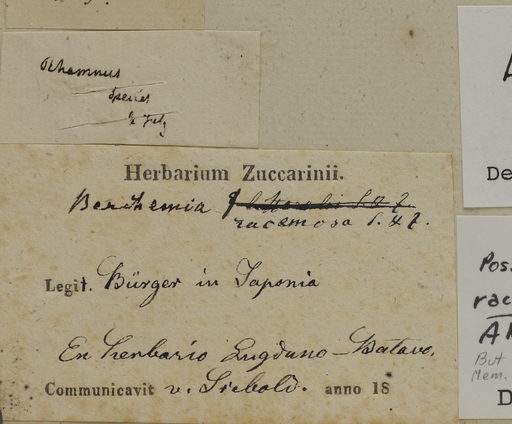 Rhamnus
Species
½ July
Herbarium Zuccarinii.
Berchemia
racemosa S. & Z.
Legit. Bürger in Japonia
Ex herbario Lugduno-Batavo.
Communicavit v. Siebold. anno 18
De
Pos.
rac
But
Mem.
D